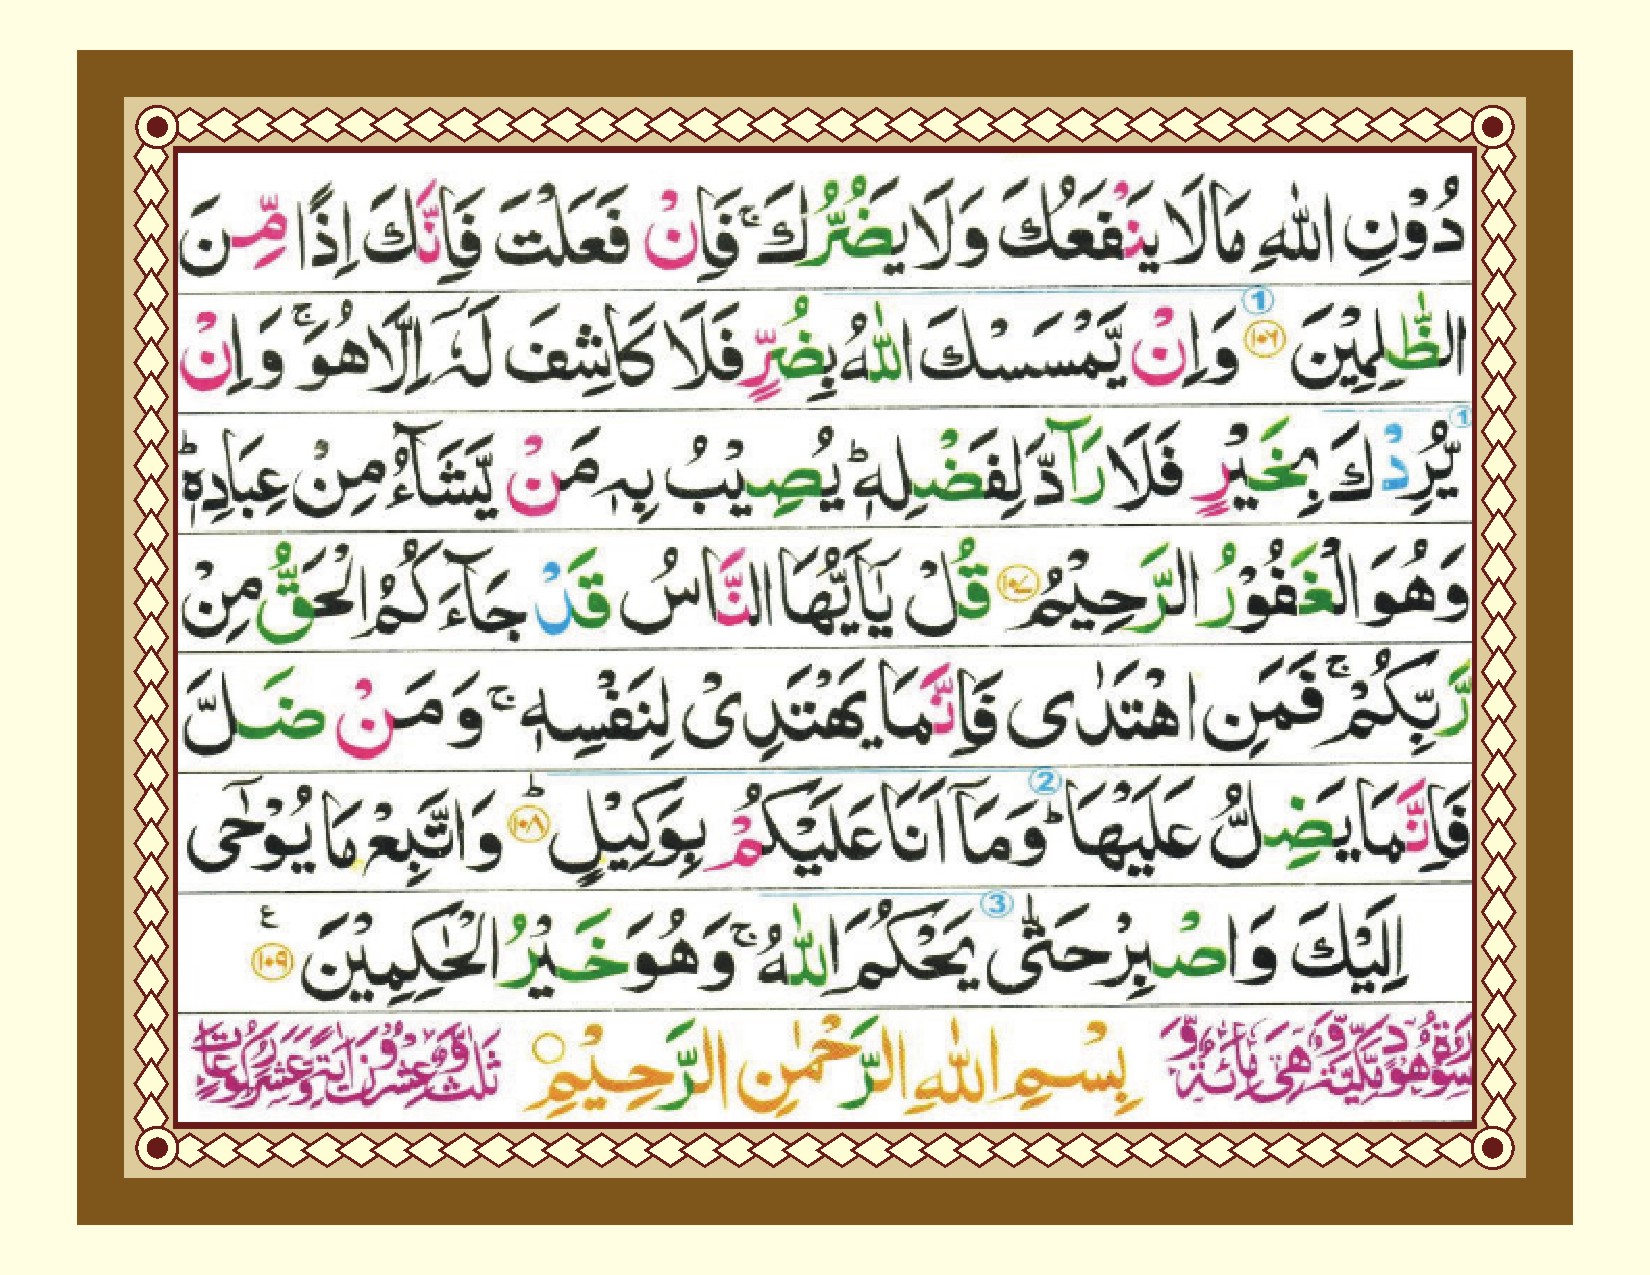 دُوْنِ اللّٰهِ مَا لَا يَنْفَعُكَ وَلَا يَضُرُّكَ ۚ فَاِنْ فَعَلْتَ فَاِنَّكَ اِذًا مِّنَ
الظّٰلِمِيْنَ ۝١٠٦ ① وَاِنْ يَّمْسَسْكَ اللّٰهُ بِضُرٍّ فَلَا كَاشِفَ لَهٗۤ اِلَّا هُوَ ۚ وَاِنْ
① يُّرِدْكَ بِخَيْرٍ فَلَا رَآدَّ لِفَضْلِهٖ ؕ يُصِيْبُ بِهٖ مَنْ يَّشَآءُ مِنْ عِبَادِهٖ ؕ
وَهُوَ الْغَفُوْرُ الرَّحِيْمُ ۝١٠٧ قُلْ يٰۤاَيُّهَا النَّاسُ قَدْ جَآءَكُمُ الْحَقُّ مِنْ
رَّبِّكُمْ ۚ فَمَنِ اهْتَدٰى فَاِنَّمَا يَهْتَدِىْ لِنَفْسِهٖ ۚ وَمَنْ ضَلَّ
فَاِنَّمَا يَضِلُّ عَلَيْهَا ؕ ② وَمَاۤ اَنَا عَلَيْكُمْ بِوَكِيْلٍ ؕ ۝١٠٨ وَاتَّبِعْ مَا يُوْحٰۤى
اِلَيْكَ وَاصْبِرْ حَتّٰى ③ يَحْكُمَ اللّٰهُ ۚ وَهُوَ خَيْرُ الْحٰكِمِيْنَ ۝١٠٩ ع
سُوْرَةُ هُوْدٍ مَّكِّيَّةٌ وَّهِىَ مِائَةٌ وَّ بِسْمِ اللّٰهِ الرَّحْمٰنِ الرَّحِيْمِ ثَلٰثٌ وَّعِشْرُوْنَ اٰيَةً وَّعَشَرُ رُكُوْعَاتٍ